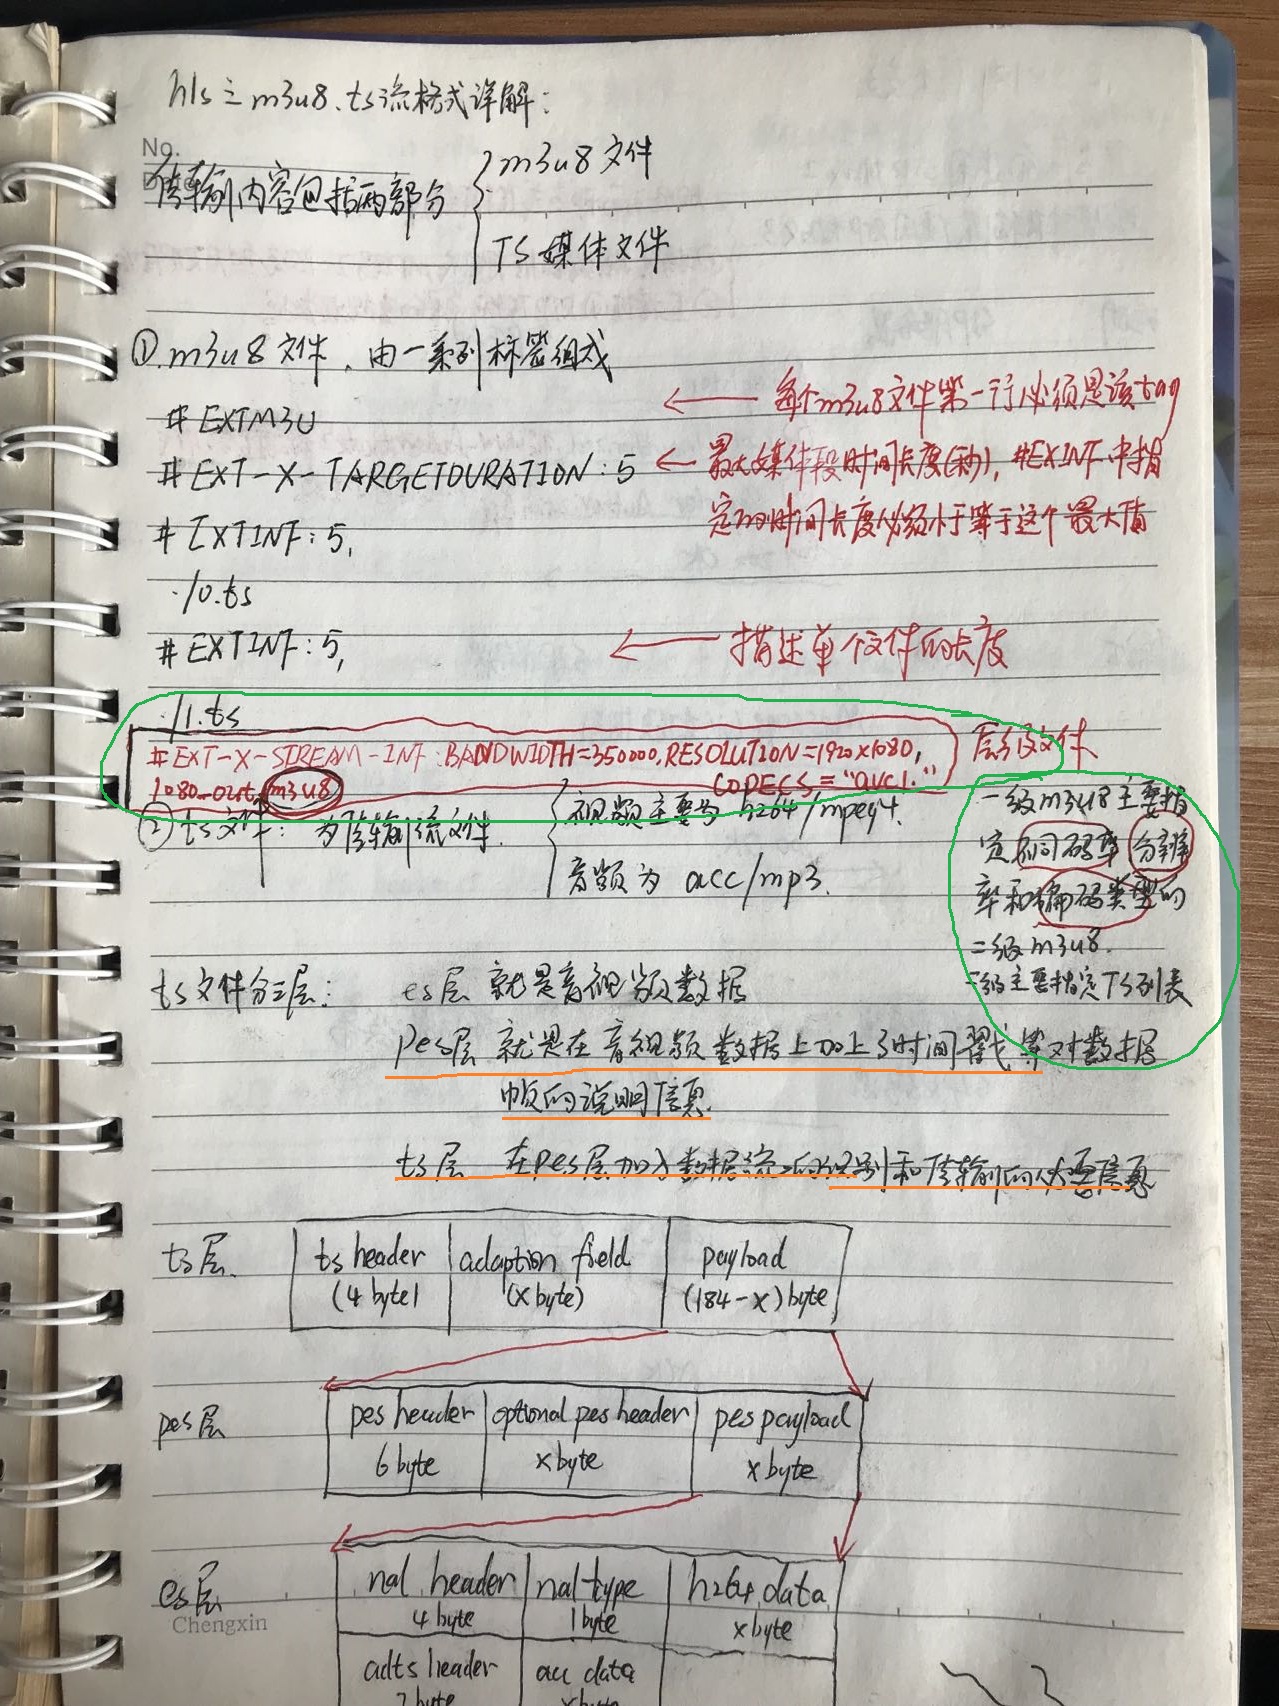 hls之m3u8、ts流格式详解:
No.
D
传输内容包括两部分
m3u8文件
TS 媒体文件
①.m3u8文件、由一系列标签组成
#EXTM3U
← 每个m3u8文件第一行必须是该tag
#EXT-X-TARGETDURATION:5
← 最大媒体段时间长度(秒),#EXINF中指
定的时间长度必须小于等于这个最大值
#EXTINF:5,
./0.ts
#EXTINF:5,
← 描述单个文件的长度
./1.ts
#EXT-X-STREAM-INF:BANDWIDTH=350000,RESOLUTION=1920x1080,
CODECS="avc1."
1080_out.m3u8
层级文件
一级m3u8主要指
定不同码率 分辨
率和编码类型的
二级m3u8.
二级主要指定TS列表
②ts文件: 为传输流文件.
视频主要为 h264/mpeg4.
音频为 acc/mp3.
ts文件分三层: es层 就是音视频数据
pes层 就是在音视频数据上加上了时间戳等对数据
帧的说明信息.
ts层 在pes层加入数据流的识别和传输的必要信息
ts层
ts header
(4 byte)
adaption field
(x byte)
payload
(184-x)byte
pes层
pes header
6 byte
optional pes header
x byte
pes payload
x byte
es层
nal header
4 byte
nal type
1 byte
h264 data
x byte
Chengxin
adts header
7 byte
acc data
x byte